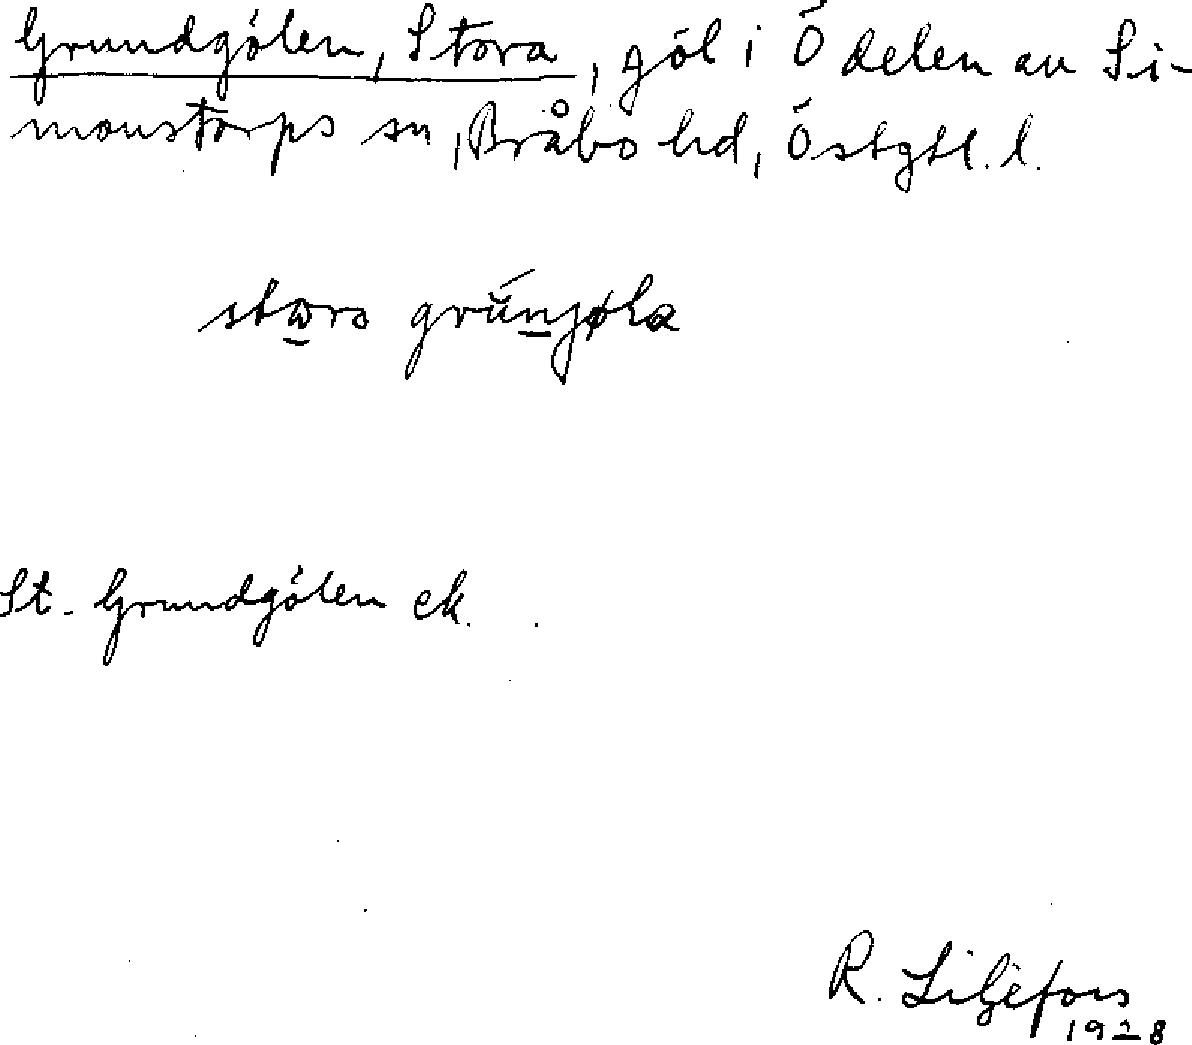 Grundgölen, Stora, göl i Ö delen av Si-
monstorps sn, Bråbo hd, Östgtl. l.
St. Grundgölen ek.
R. Liljefors
1928